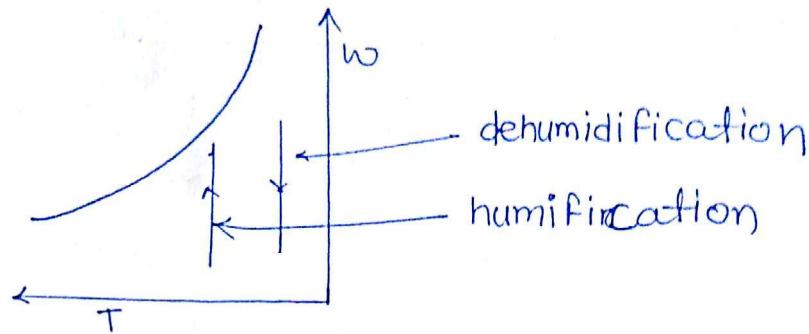 w
dehumidification
humifircation
T